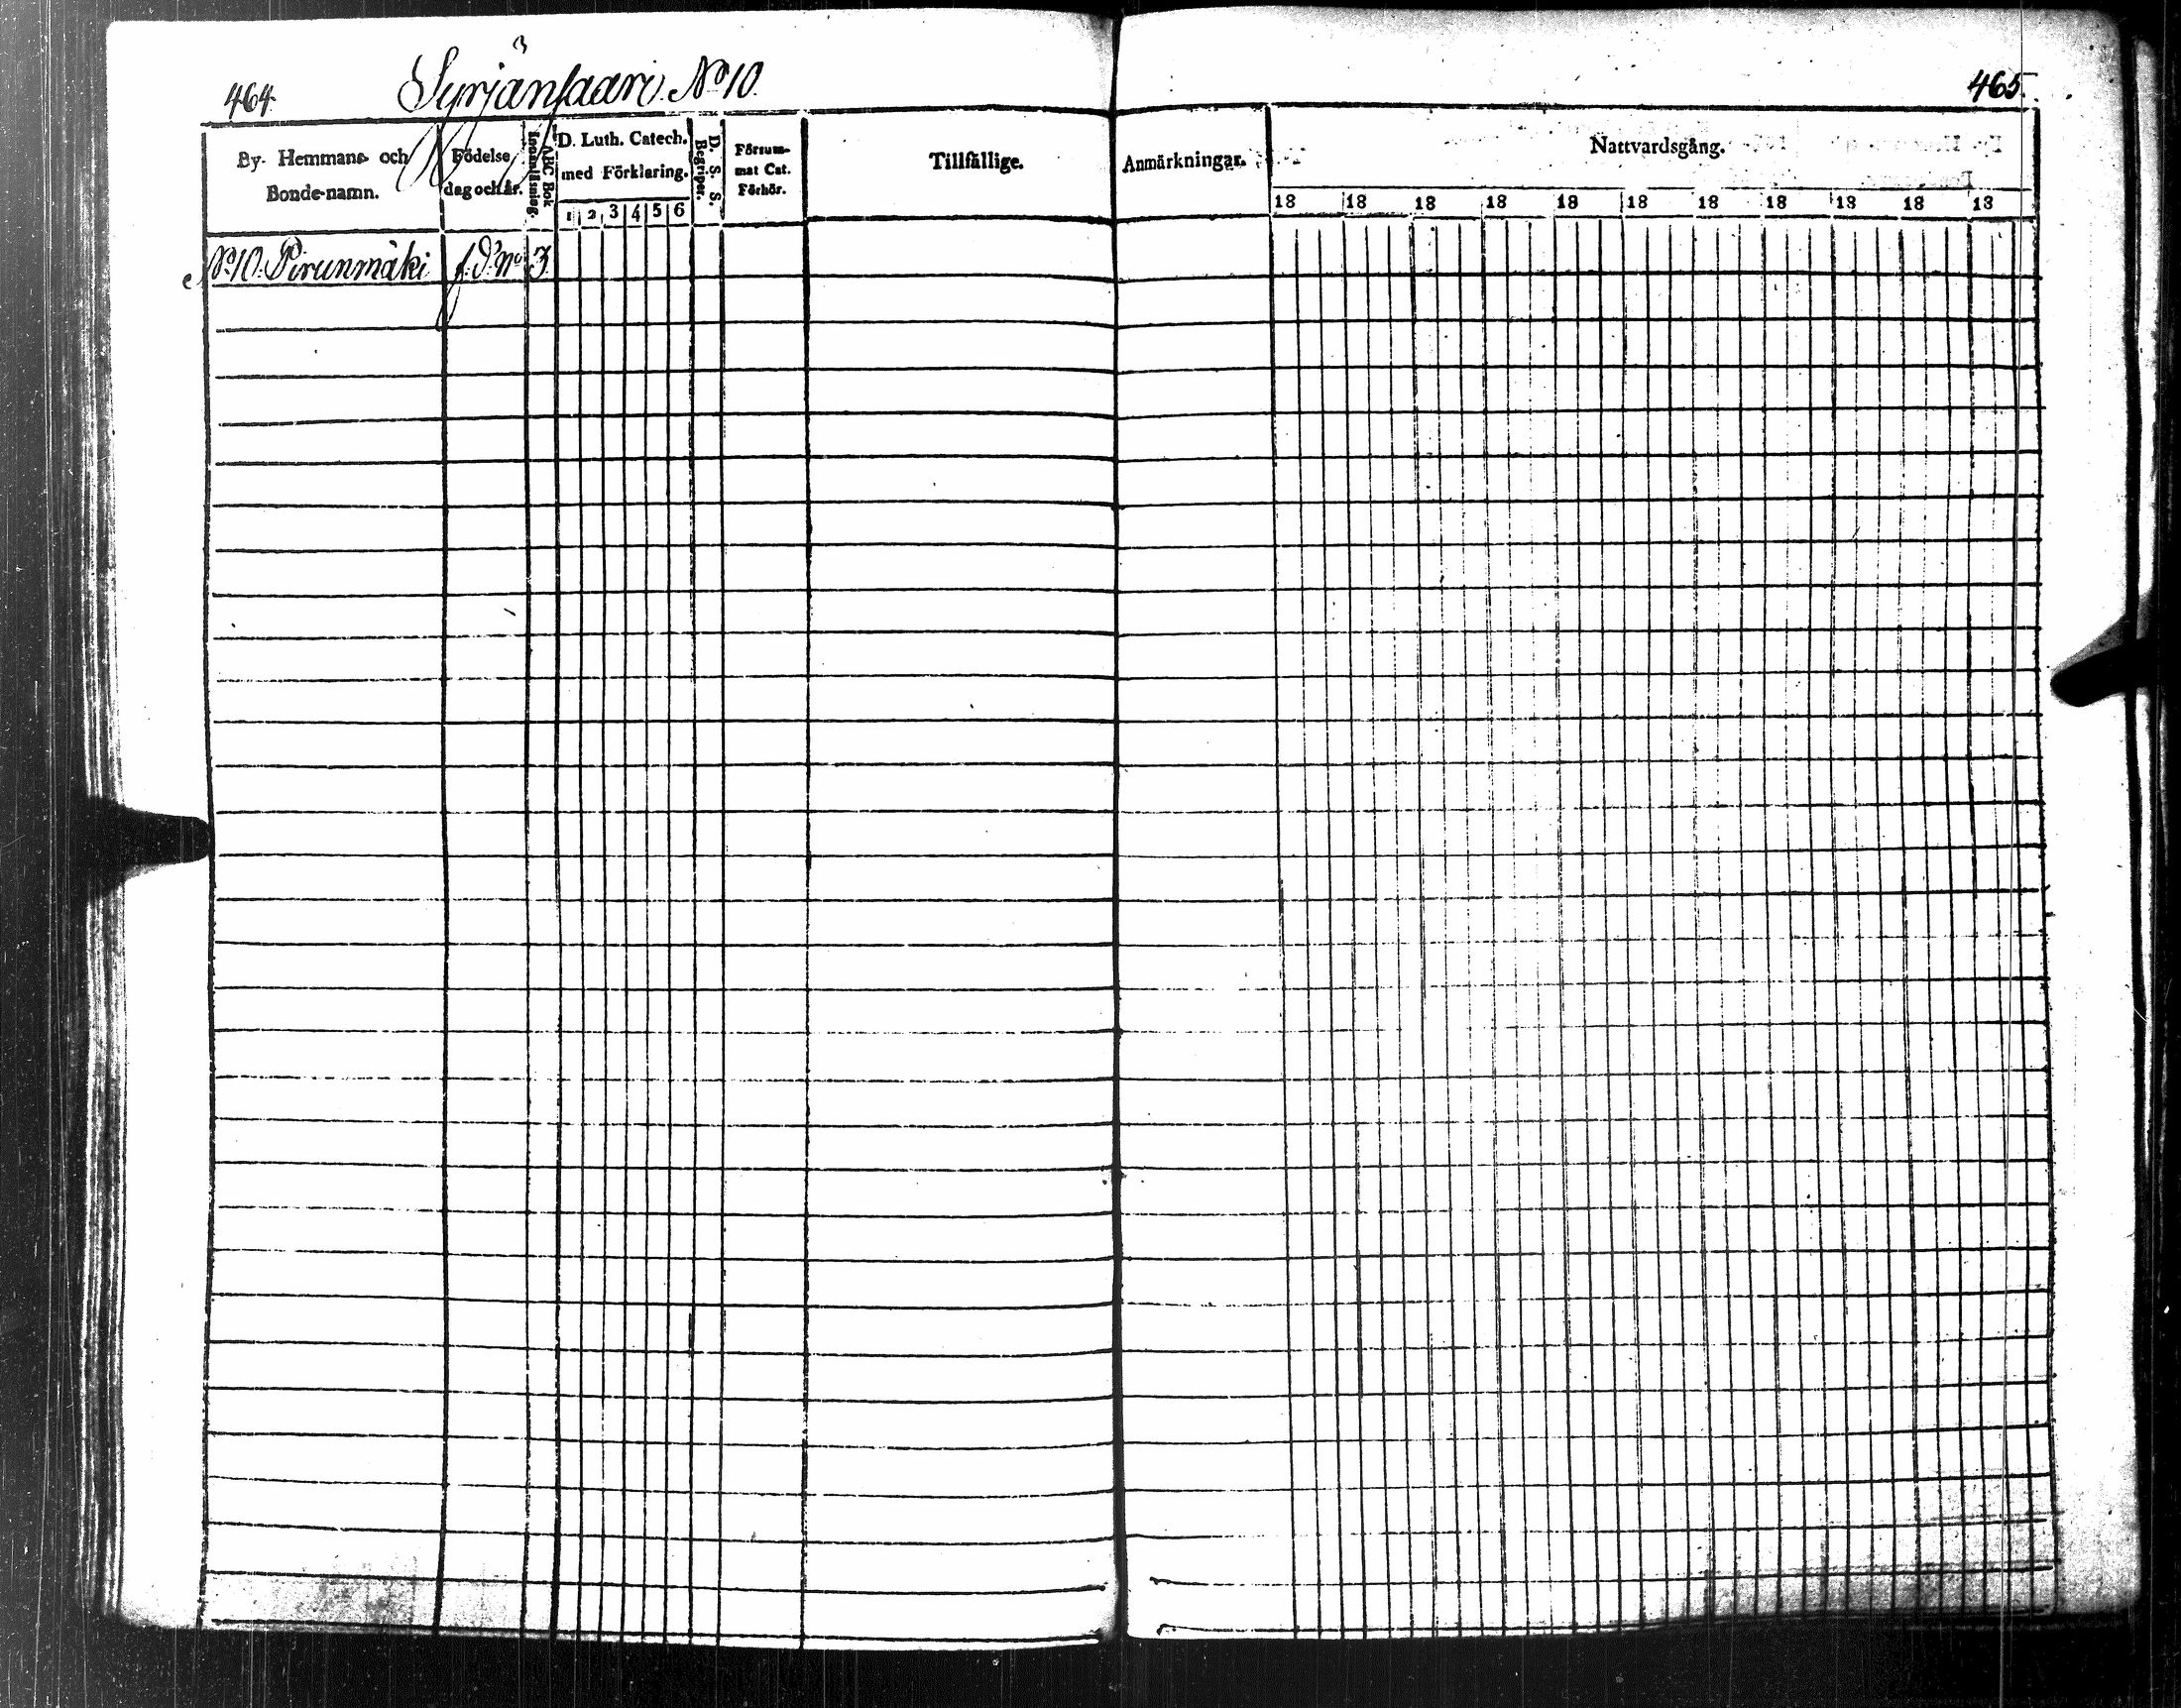 464.
Syrjänsaari. No 10.
465.
By- Hemmans- och
Bonde-namn.
Födelse
dag och år.
ABC Bok
Innanläsning.
D. Luth. Catech.
med Förklaring.
1 2 3 4 5 6
D. S. S.
Begriper.
Försum-
mat Cat.
Förhör.
Tillfällige.
Anmärkningar.
Nattvardsgång.
18 18 18 18 18 18 18 18 18 18 18
No 10. Pirunmäki f. d. No 3